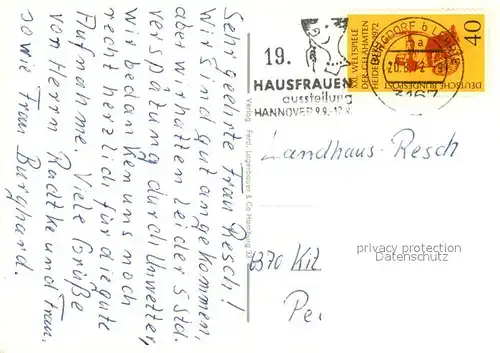 Sehr geehrte Frau Resch!
Wir sind gut angekommen,
aber wir hatten leider 5 Std.
verspätung durch Unwetter,
wir bedanken uns noch
recht herzlich für die gute
Aufnahme. Viele Grüße
von Herrn Radtke und Frau,
sowie Frau Burghard.
Verlag Ferd. Lagerbauer & Co Hamburg 33
19.
HAUSFRAUEN
ausstellung
HANNOVER 9.9.-17.9.
XXI. WELTSPIELE
DER GELÄHMTEN
HEIDELBERG 1972
DEUTSCHE BUNDESPOST
40
BURGDORF
3167
Landhaus-Resch
6370 Kit
Pe
privacy protection
Datenschutz